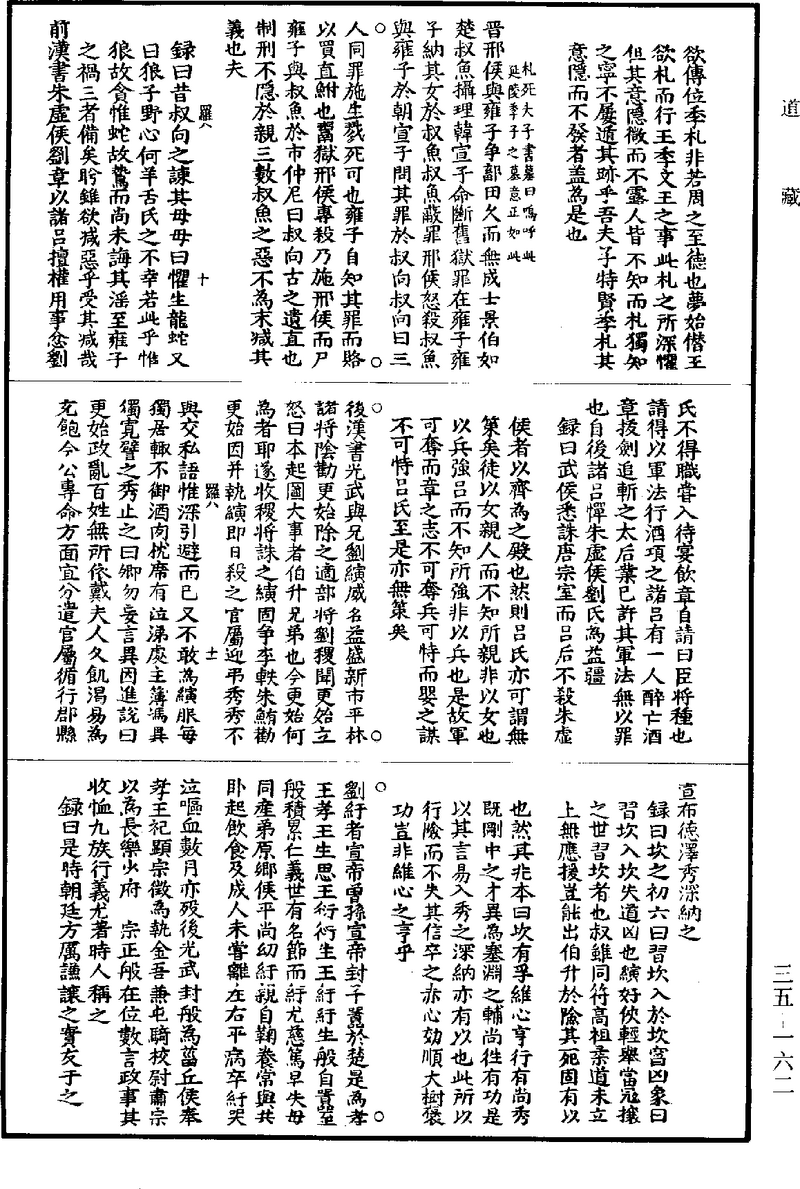 道藏
欲傳位季札非若周之至德也夢始僭王
欲札而行王季文王之事此札之所深懼
但其意隱微而不露人皆不知而札獨知
之寧不屢遁其跡乎吾夫子特賢季札其
意隱而不發者盖為是也
札死夫子書墓曰嗚呼此
延陵季子之墓意正如此
晉邢侯與雍子争鄐田久而無成士景伯如
楚叔魚攝理韓宣子命斷舊獄罪在雍子雍
子納其女於叔魚叔魚蔽罪邢侯邢侯怒殺叔魚
與雍子於朝宣子問其罪於叔向叔向曰三
人同罪施生戮死可也雍子自知其罪而賂
以買直鮒也鬻獄邢侯專殺乃施邢侯而尸
雍子與叔魚於市仲尼曰叔向古之遺直也
制刑不隱於親三數叔魚之惡不為末減其
義也夫
羅八
十
録曰昔叔向之諫其母母曰懼生龍蛇又
曰狼子野心何羊舌氏之不幸若此乎惟
狼故貪惟蛇故鷙而尚未誨其淫至雍子
之禍三者備矣肸雖欲減惡乎受其減哉
前漢書朱虛侯劉章以諸吕擅權用事忿劉
氏不得職嘗入待宴飲章自請曰臣將種也
請得以軍法行酒項之諸吕有一人醉亡酒
章拔劍追斬之太后業已許其軍法無以罪
也自後諸吕憚朱虛侯劉氏為益彊
録曰武侯悉誅唐宗室而吕后不殺朱虛
侯者以齊為之殿也然則吕氏亦可謂無
策矣徒以女親人而不知所親非以女也
以兵強吕而不知所強非以兵也是故軍
可奪而章之志不可奪兵可恃而嬰之謀
不可恃吕氏至是亦無策矣
後漢書光武與兄劉縯威名益盛新市平林
諸將陰勸更始除之適部將劉稷聞更始立
怒曰本起圖大事者伯升兄弟也今更始何
為者耶遂收稷將誅之縯固争李軼朱鮪勸
更始因并執縯即日殺之官屬迎弔秀秀不
羅八
十一
與交私語惟深引避而已又不敢為縯服每
獨居輒不御酒肉枕席有泣涕處主簿馮異
獨寬譬之秀止之曰卿勿妄言異因進說曰
更始政亂百姓無所依戴夫人久飢渴易為
充飽今公專命方面宜分遣官屬循行郡縣
宣布德澤秀深納之
録曰坎之初六曰習坎入於坎窞凶象曰
習坎入坎失道凶也縯好俠輕舉當冠攘
之世習坎者也叔雖同符高祖柔道未立
上無應援豈能出伯升於險其死固有以
也然其兆本曰坎有孚維心亨行有尚秀
既剛中之才異為塞淵之輔尚往有功是
以其言易入秀之深納亦有以也此所以
行險而不失其信卒之赤心効順大樹褒
功豈非維心之亨乎
劉紆者宣帝曾孫宣帝封子囂於楚是為孝
王孝王生思王衍衍生王紆紆生般自囂至
般積累仁義世有名節而紆尤慈篤早失母
同産弟原鄉侯平尚幼紆親自鞠養常與共
卧起飲食及成人未嘗離左右平病卒紆哭
泣嘔血數月亦殁後光武封般為菑丘侯奉
孝王祀顯宗徵為執金吾兼屯騎校尉肅宗
以為長樂少府　宗正般在位數言政事其
收恤九族行義尤著時人稱之
録曰是時朝廷方厲謙讓之實友于之
三五-一六二